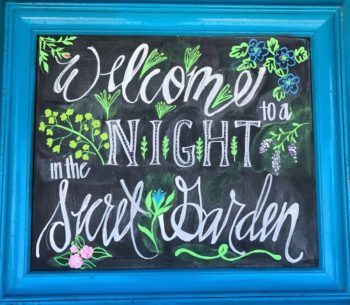 Welcome
to a
NIGHT
in the
Secret Garden